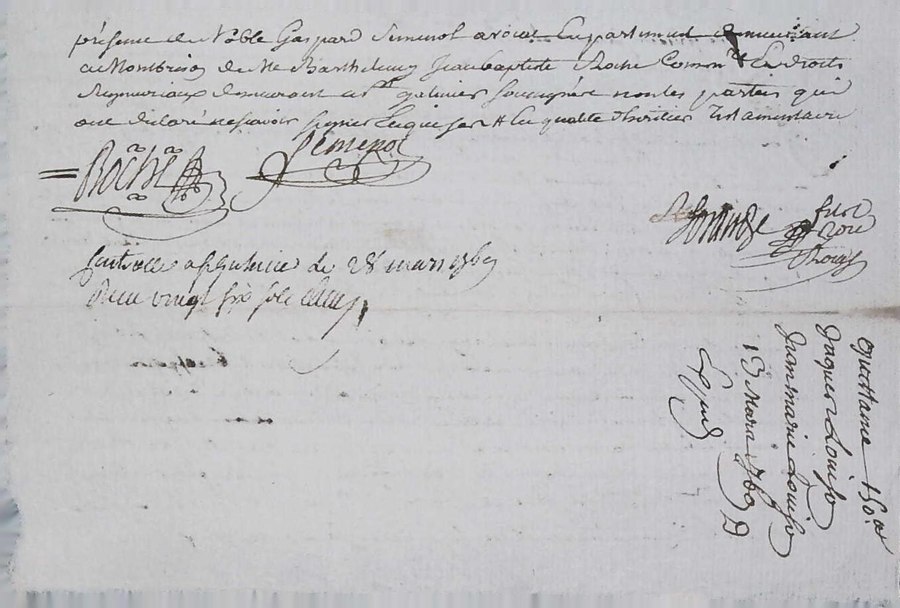 présence de Noble Gaspard Simenot avocat en parlement demeurant
a Montbrison de Me Barthelemy Jean baptiste Roche Comm.re es droits
seigneuriaux demeurant a St galmier soussignés non les parties qui
ont déclaré ne scavoir signer de ce Requises # En qualité d'heritier Testamentaire
Roche Simenot
not Royal
Controllé a le 28 mars 1769
Recu vingt six sols
Quittance 150ll
Jaques Louison
Jean marie Louison
13 Mars 1769